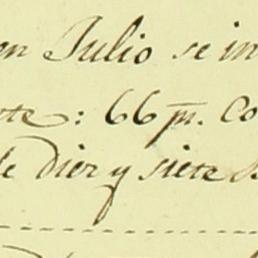 en Julio se in
te: 66 p̄. Co
le diez y siete